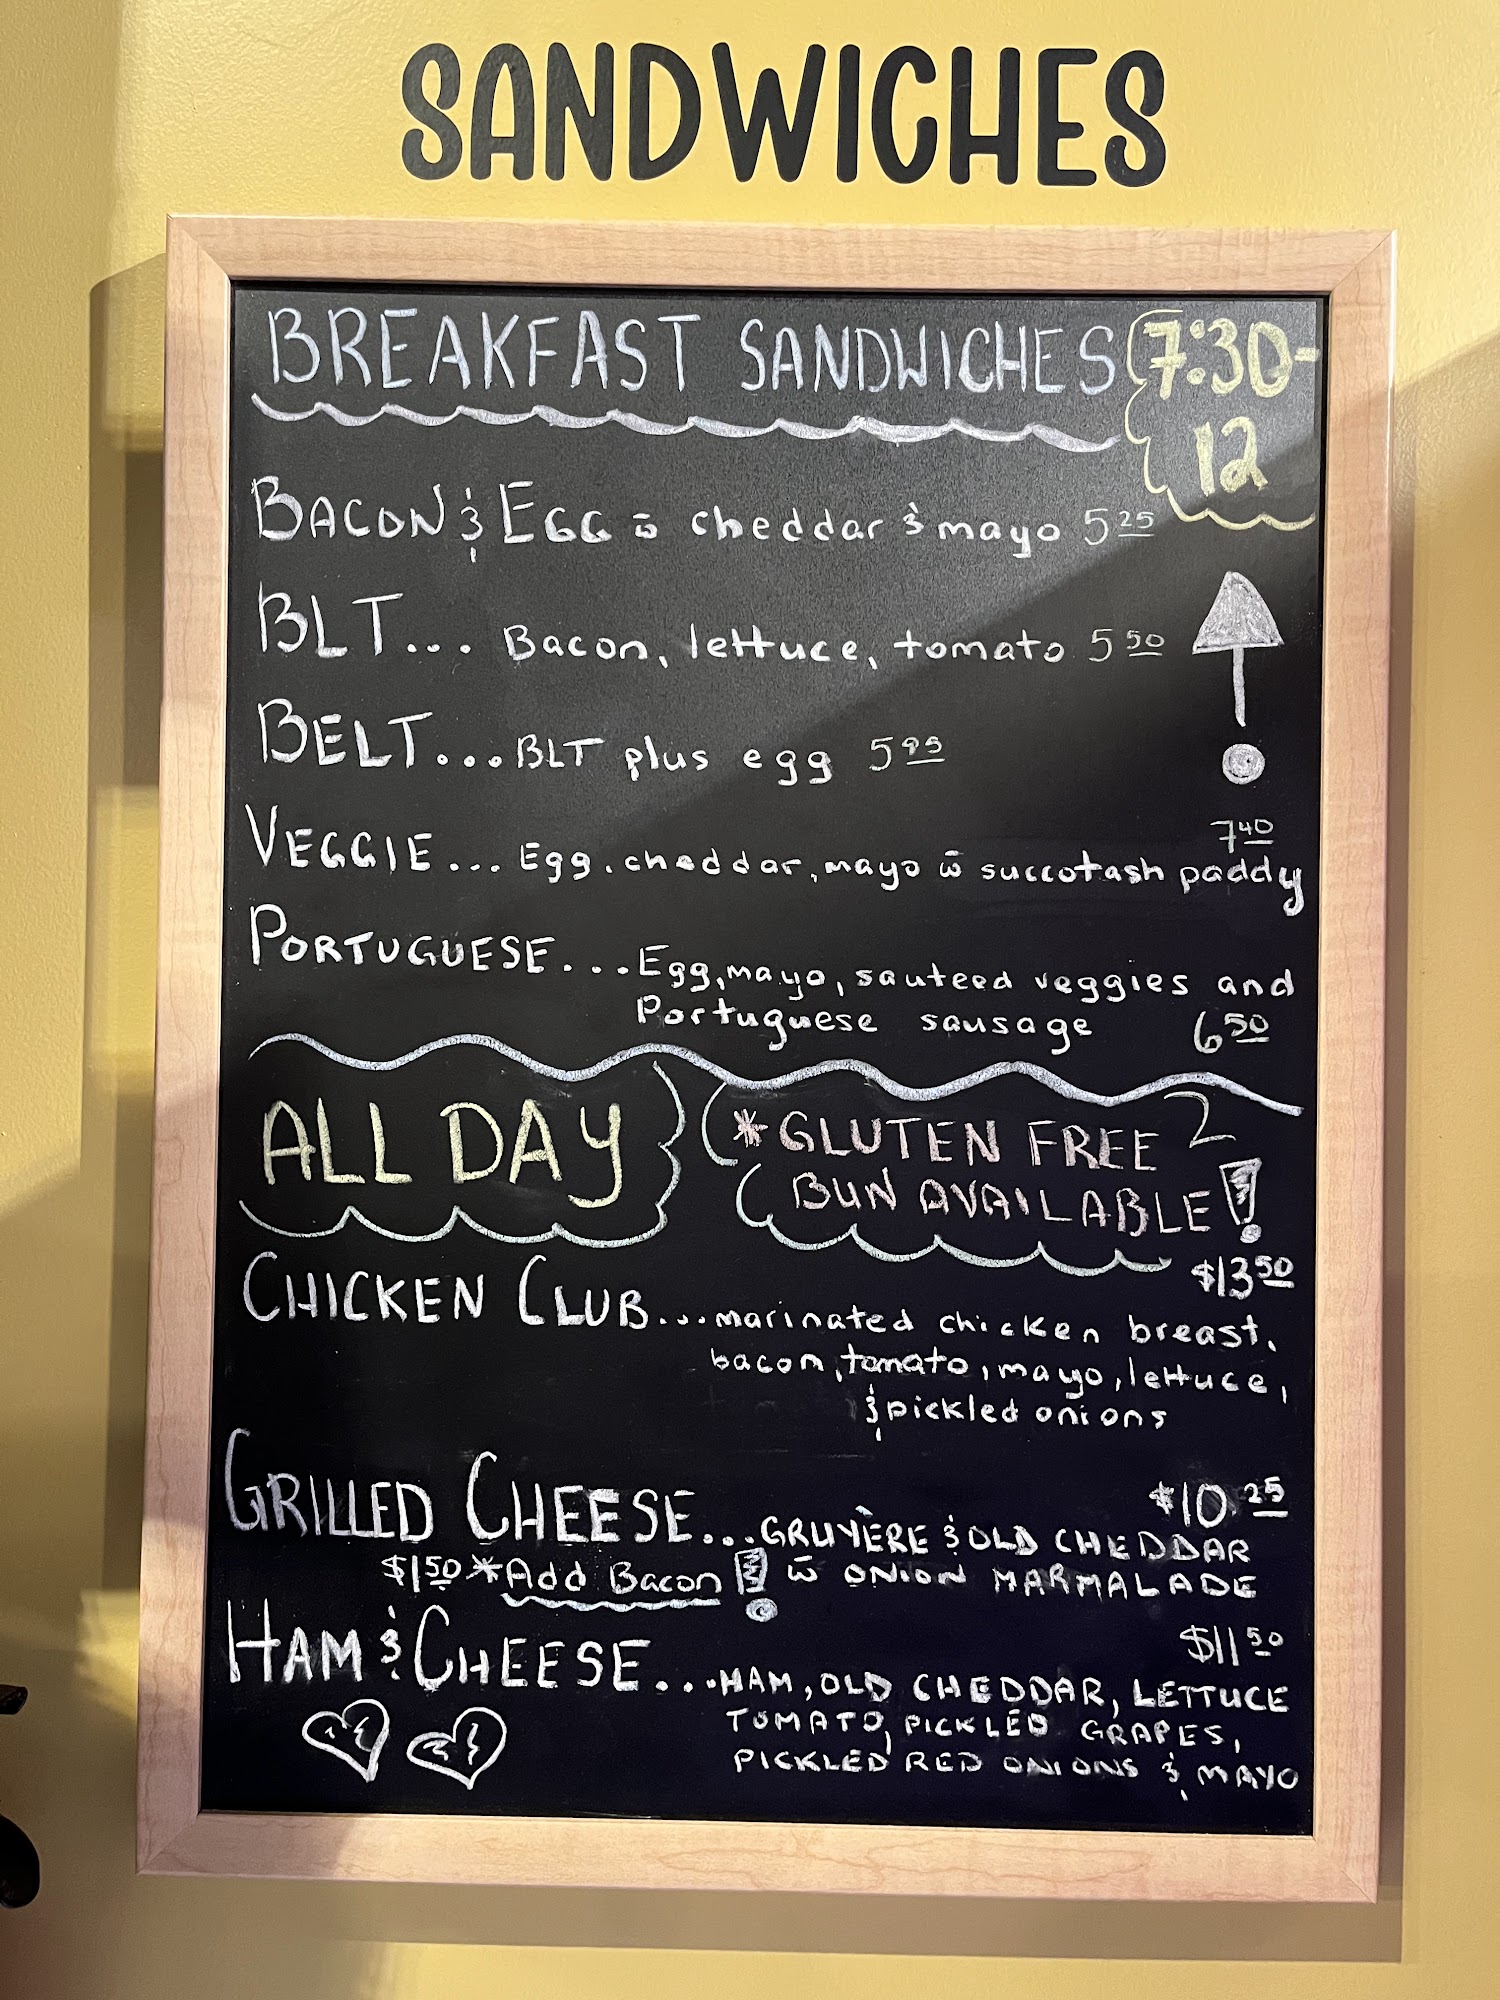 SANDWICHES
BREAKFAST SANDWICHES 7:30-
12
BACON & EGG w̄ cheddar & mayo 5 25
BLT... Bacon, lettuce, tomato 5 50
BELT... BLT plus egg 5 95
7 40
VEGGIE... Egg, cheddar, mayo w̄ succotash paddy
PORTUGUESE... Egg, mayo, sauteed veggies and
Portuguese sausage 6 50
ALL DAY
*GLUTEN FREE
BUN AVAILABLE!
$13 50
CHICKEN CLUB... marinated chicken breast,
bacon, tomato, mayo, lettuce,
& pickled onions
$10.25
GRILLED CHEESE... GRUYÈRE & OLD CHEDDAR
$1 50 *Add Bacon! w̄ ONION MARMALADE
$11 50
HAM & CHEESE... HAM, OLD CHEDDAR, LETTUCE
TOMATO, PICKLED GRAPES,
PICKLED RED ONIONS & MAYO